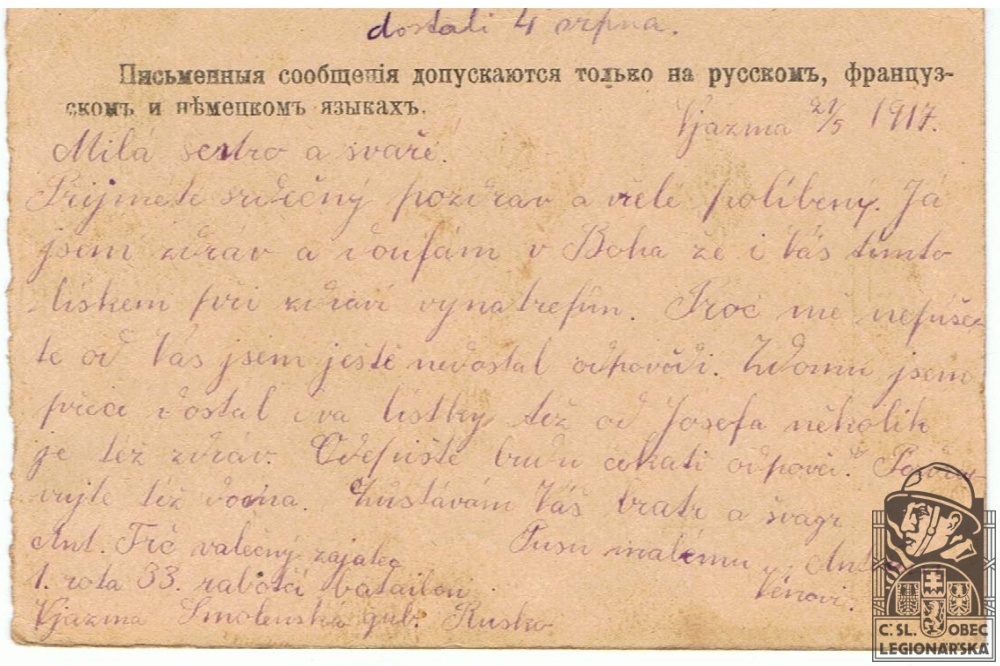 dostali 4 srpna.
Письменныя сообщенія допускаются только на русскомъ, француз-
скомъ и нѣмецкомъ языкахъ.
Vjazma 21/5 1917.
Milá sestro a svaře.
Přijměte srdečný pozdrav a vřelé políbený. Já
jsem zdráv a doufám v Boha že i Vás tímto
lískem při zdraví vynatrefím. Proč mě nepíše-
te od Vás jsem ještě nedostal odpovědi. Zdomu jsem
přeci dostal dva lístky též od Josefa několik
je též zdráv. Odepiště budu čekati odpověď. Pozdra
vujte též doma. Zůstávám Váš bratr a švagr
Ant. Fič válečný zajatec
Pusu malému
1. rota 33. rabočí batailon
Vénovi.
Vjazma Smolenská gub. Rusko
Č. SL. OBEC
LEGIONÁŘSKÁ